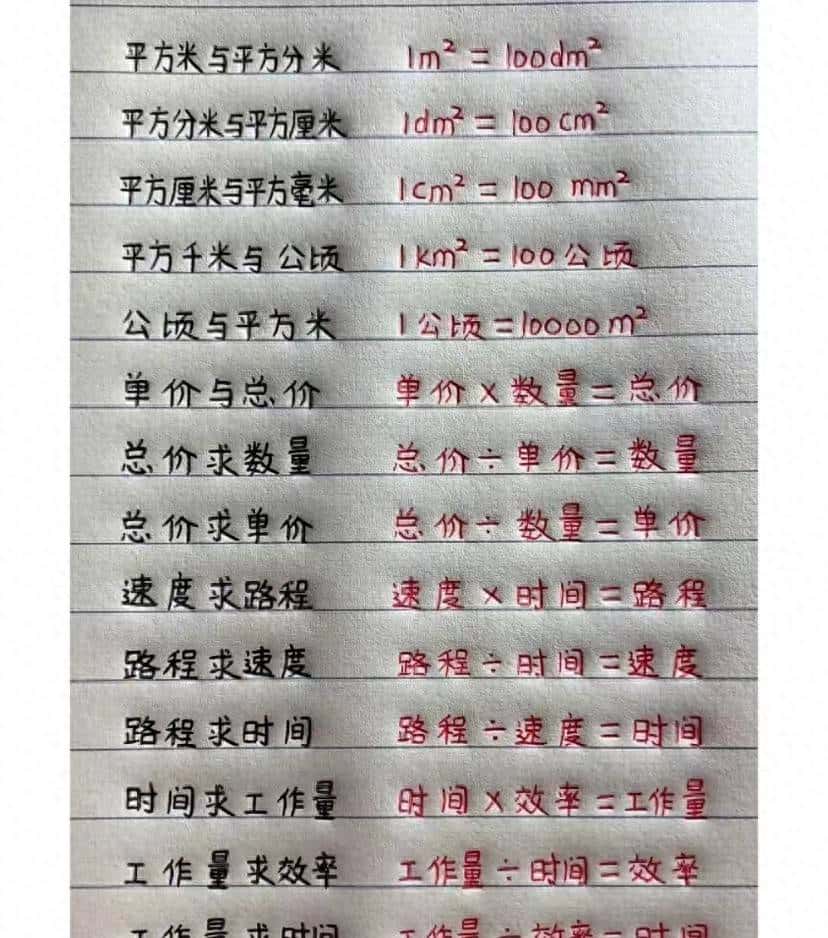 平方米与平方分米 1m² = 100dm²
平方分米与平方厘米 1dm² = 100cm²
平方厘米与平方毫米 1cm² = 100 mm²
平方千米与公顷 1km² = 100公顷
公顷与平方米 1公顷 = 10000m²
单价与总价 单价×数量=总价
总价求数量 总价÷单价=数量
总价求单价 总价÷数量=单价
速度求路程 速度×时间=路程
路程求速度 路程÷时间=速度
路程求时间 路程÷速度=时间
时间求工作量 时间×效率=工作量
工作量求效率 工作量÷时间=效率
工作量求时间 工作量÷效率=时间